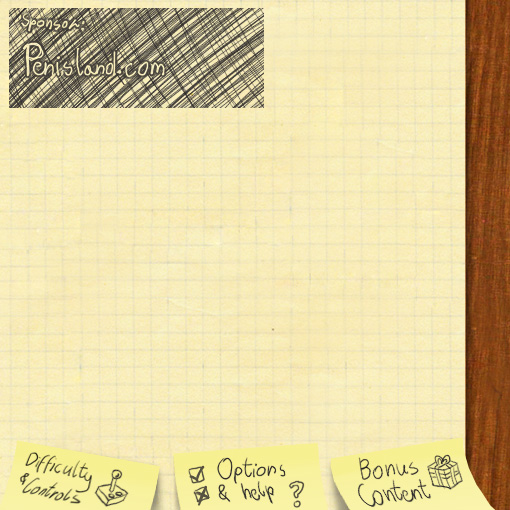 Sponsor:
Penisland.com
Difficulty
& Controls
Options
& help ?
Bonus
Content